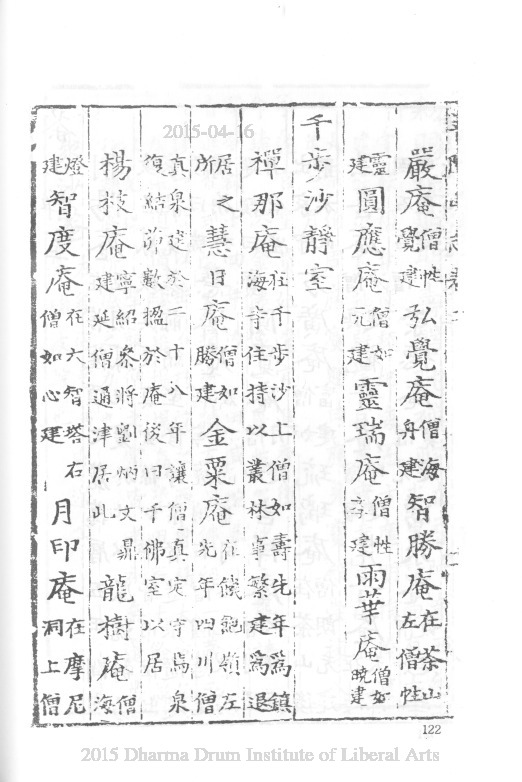 2015-04-16
嚴庵僧性覺建弘覺庵僧海舟建智勝庵在茶山左僧性
靈建圓應庵僧如元建靈瑞庵僧性建雨華庵僧如曉建
千步沙靜室
禪那庵在千步沙上僧如壽先年為鎮海寺住持以叢林事繁建為退
居之所慧日庵僧如勝建金粟庵在嶺左先年四川僧
真泉建於二十八年讓僧真定守焉泉復結茆數楹於庵後曰千佛室以居
楊枝庵寧紹參將劉炳文鼎建延僧通津居此龍樹庵僧海
燈建智度庵在大智塔右僧如心建月印庵在摩尼洞上僧
122
2015 Dharma Drum Institute of Liberal Arts